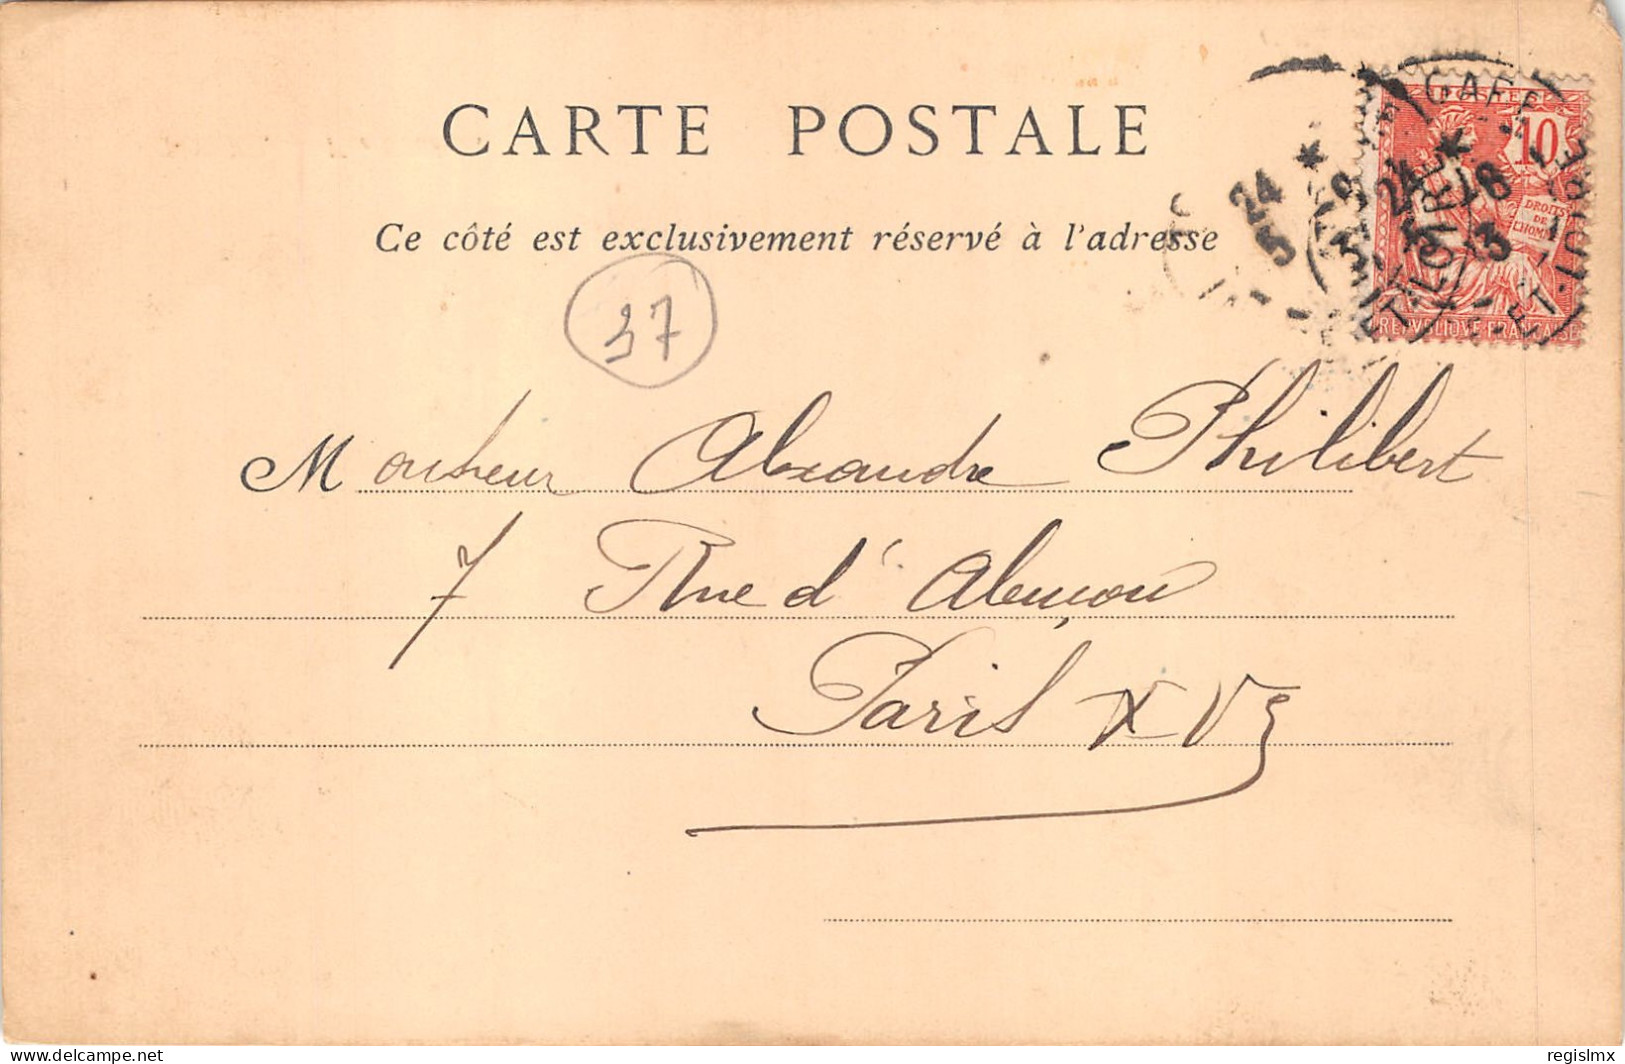 CARTE POSTALE
Ce côté est exclusivement réservé à l'adresse
37
POSTES
10
DROITS
DE
L'HOMME
REPVBLIQVE FRANCAISE
GARE
ET-LOIRE
24
5
Monsieur Alexandre Philibert
7 Rue d'Alençon
Paris XVe
www.delcampe.net
regislmx